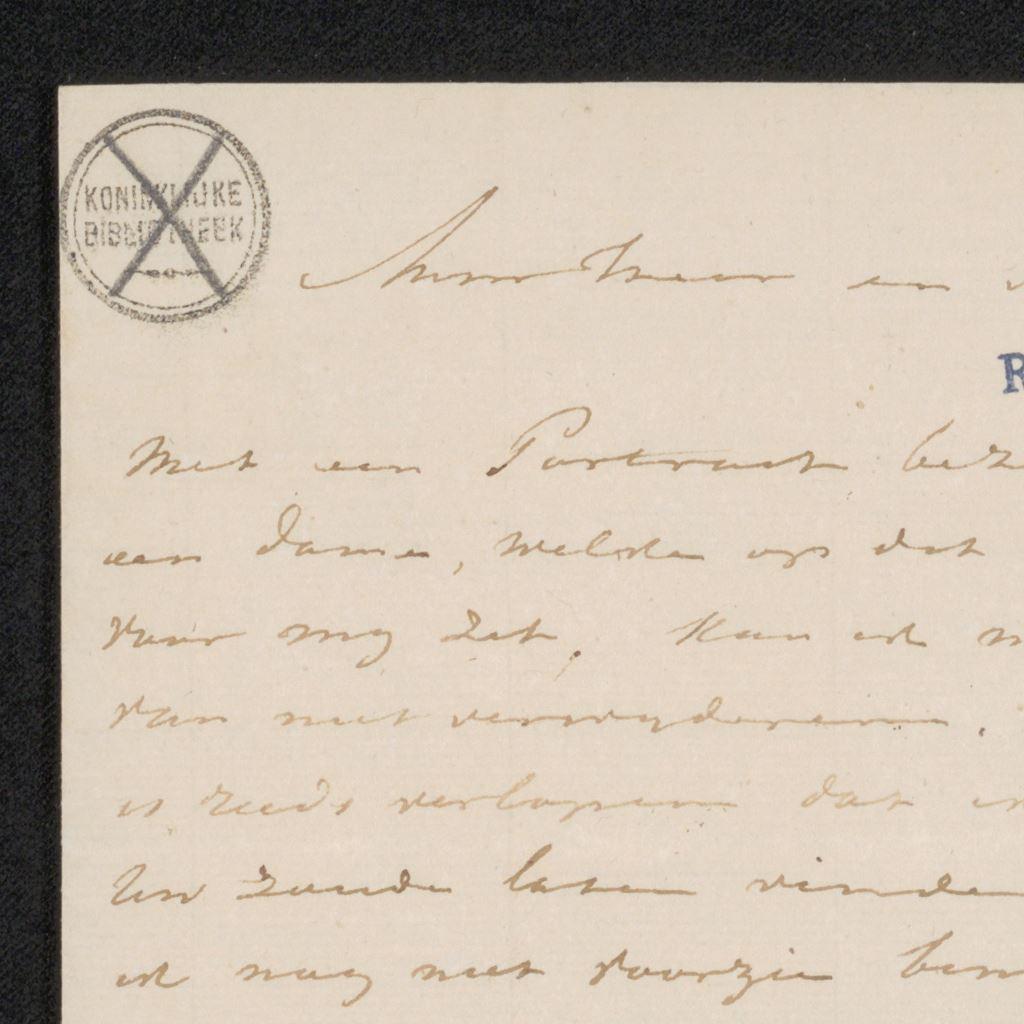 KONINKLIJKE
BIBLIOTHEEK
Mijn Heer en
R
Met een Portrait bez
een dame, welke op dat
voor mij zit, kan ik
van niet verwijderen.
is reeds verlopen dat
Uw zoude laten vinden
ik nog niet voorzie ben